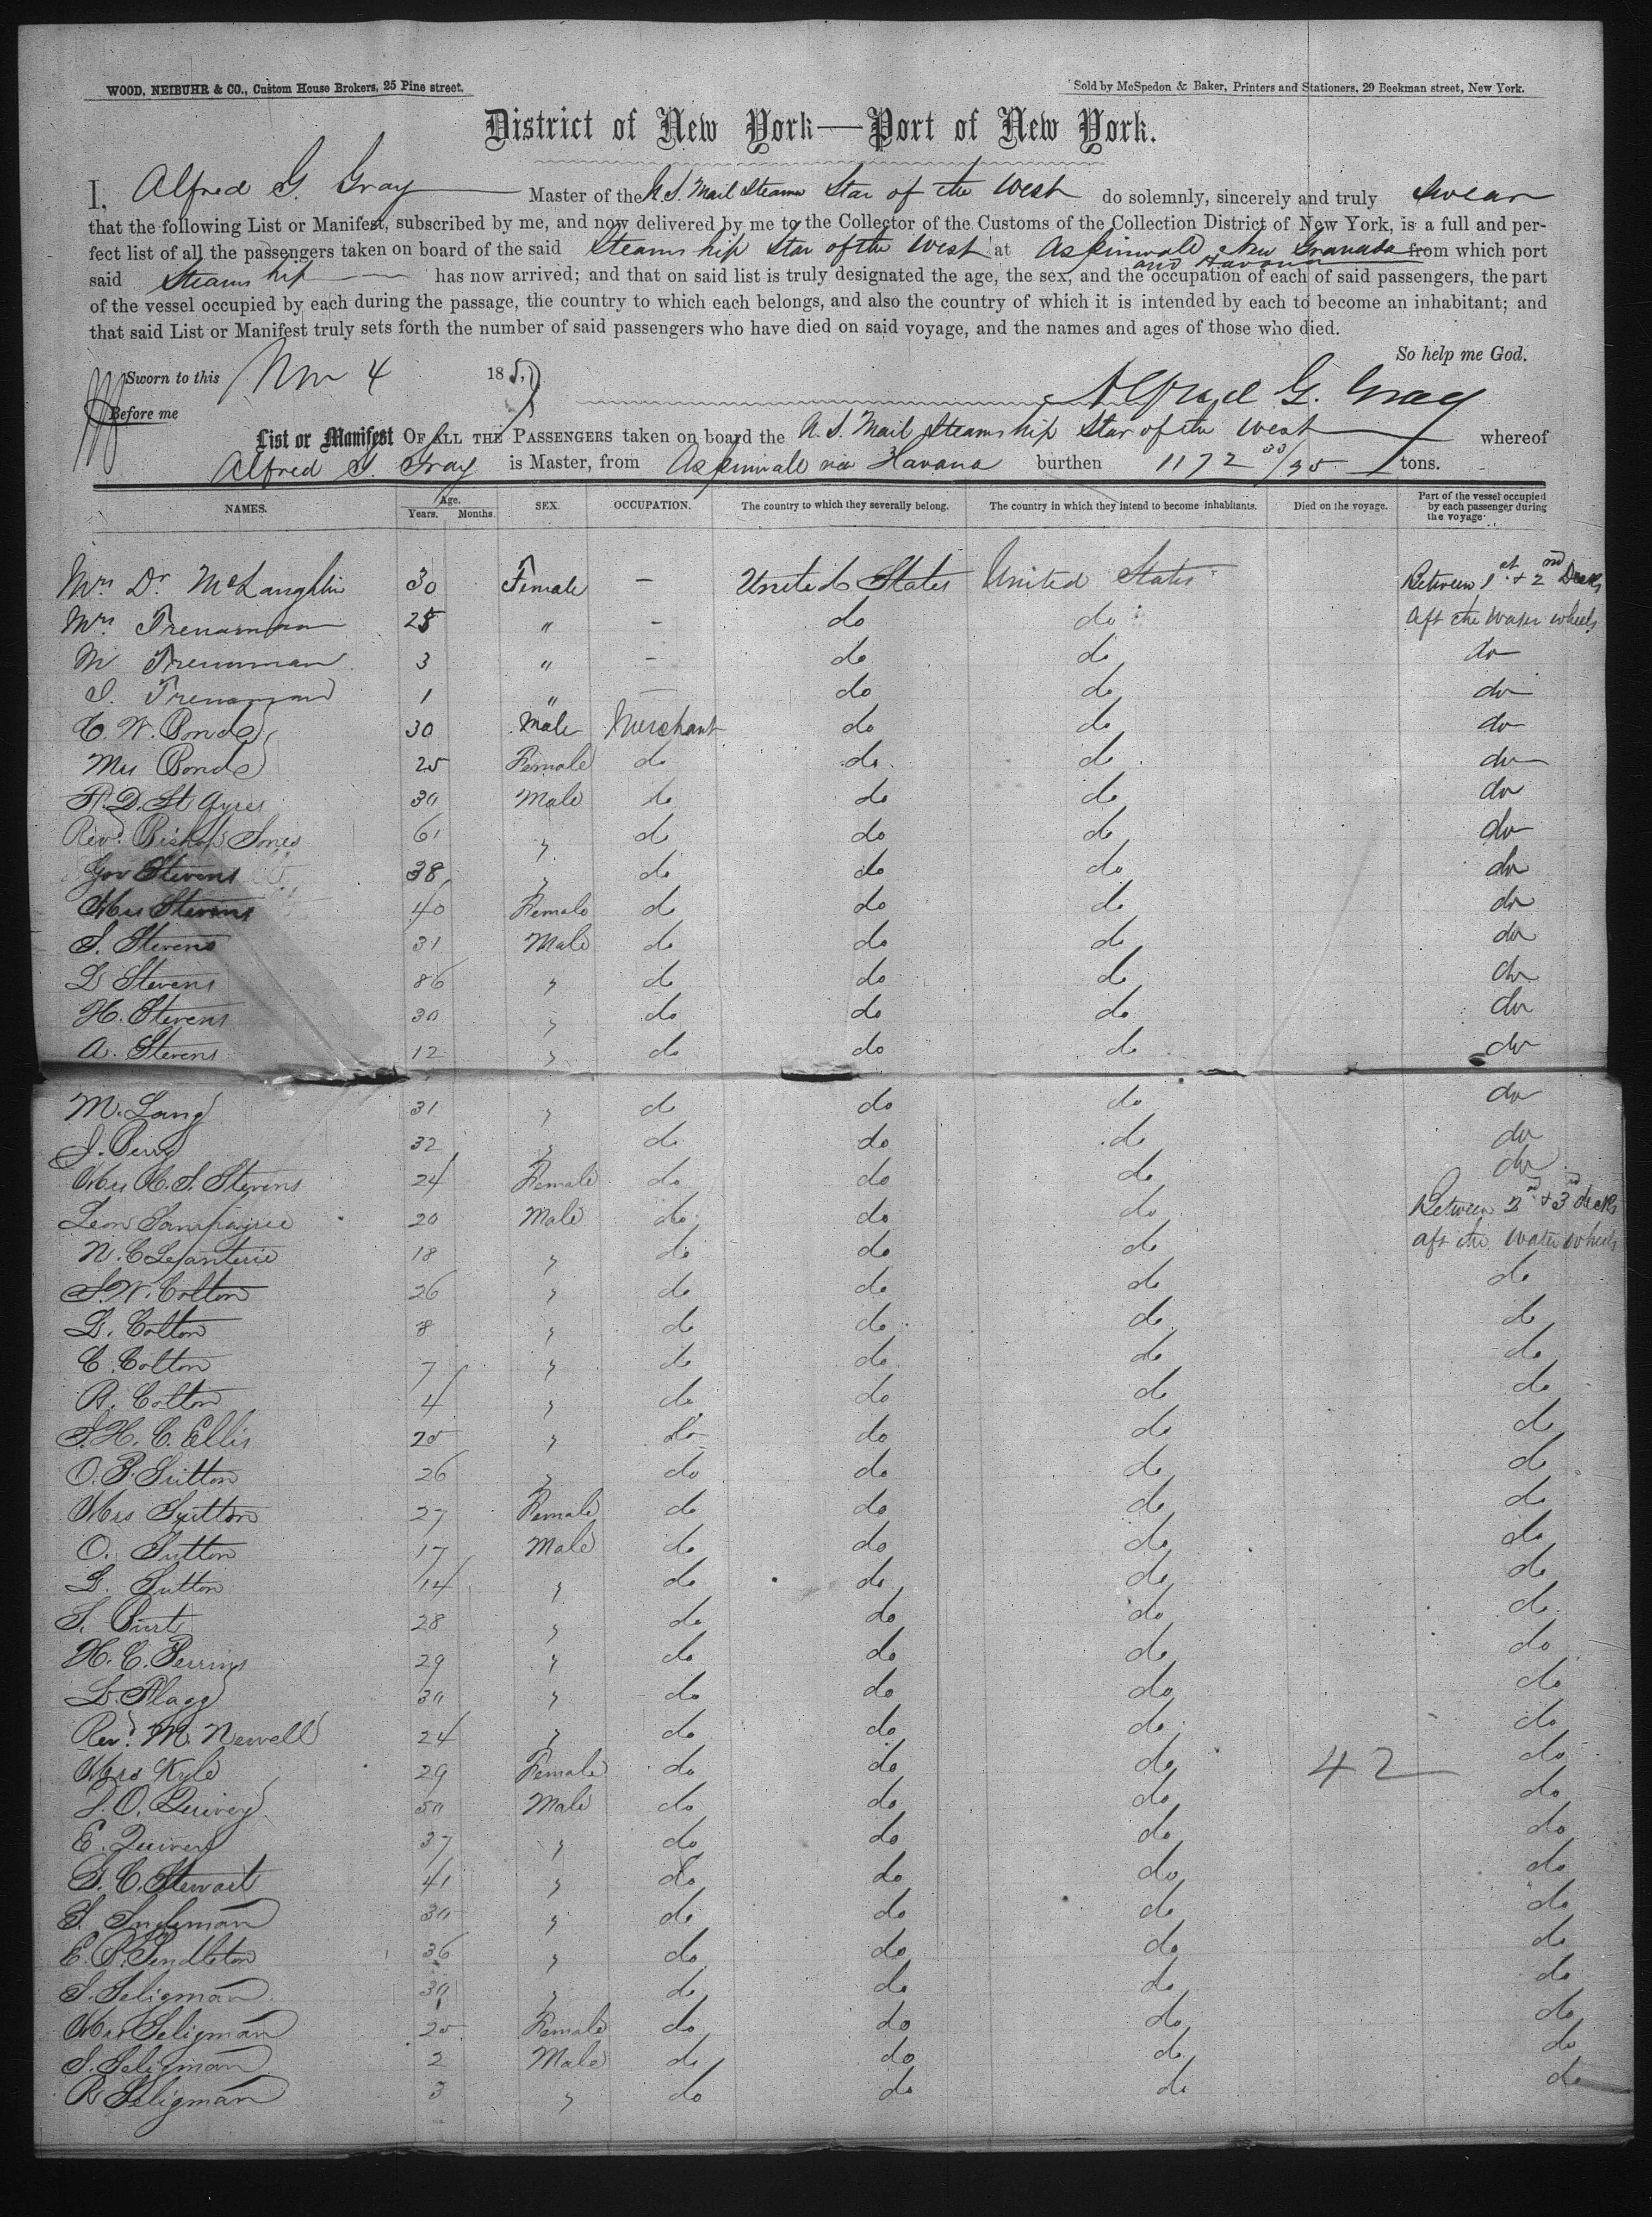 WOOD, NEIBUHR & CO., Custom House Brokers, 25 Pine street.
Sold by McSpedon & Baker, Printers and Stationers, 29 Beekman street, New York.
District of New York—Port of New York.
I, Alfred G. Gray Master of the U.S. Mail Steamer Star of the West do solemnly, sincerely and truly swear
that the following List or Manifest, subscribed by me, and now delivered by me to the Collector of the Customs of the Collection District of New York, is a full and per-
fect list of all the passengers taken on board of the said Steam ship Star of the West at Aspinwall New Granada and Havana from which port
said Steam ship has now arrived; and that on said list is truly designated the age, the sex, and the occupation of each of said passengers, the part
of the vessel occupied by each during the passage, the country to which each belongs, and also the country of which it is intended by each to become an inhabitant; and
that said List or Manifest truly sets forth the number of said passengers who have died on said voyage, and the names and ages of those who died.
So help me God.
Sworn to this Nov 4 185
Before me
Alfred G. Gray
List or Manifest OF ALL THE PASSENGERS taken on board the U.S. Mail Steam ship Star of the West whereof
Alfred G. Gray is Master, from Aspinwall via Havana burthen 1172 33/95 tons.
NAMES. Age. Years. Months. SEX. OCCUPATION. The country to which they severally belong. The country in which they intend to become inhabitants. Died on the voyage. Part of the vessel occupied by each passenger during the voyage.
Mrs Dr McLaughlin 30 Female — United States United States Between 1st & 2nd Decks
Mrs 25 " - do do aft the water wheels
M 3 " - do do do
1 " — do do do
C. W. Bonds 30 Male Merchant do do do
Mrs Bonds 25 Female do do do do
R. D. St Ayres 30 Male do do do do
Revd Bishop Jones 61 " do do do do
Gov Stevens 38 " do do do do
Mrs Stevens 40 Female do do do do
S. Stevens 31 Male do do do do
D Stevens 86 " do do do do
H. Stevens 30 " do do do do
A. Stevens 12 " do do do do
M. Lang 31 " do do do do
J. Perry 32 " do do do do
Mrs H. S. Stevens 24 Female do do do do
Leon 20 Male do do do Between 2nd & 3rd decks
N. C 18 " do do do aft the water wheels
S. W. Colton 26 " do do do do
D. Colton 8 " do do do do
C. Colton 7 " do do do do
R. Colton 4 " do do do do
S. H. C. Ellis 25 " do do do do
O. P. Sutton 26 " do do do do
Mrs Sutton 27 Female do do do do
O. Sutton 17 Male do do do do
D. Sutton 14 " do do do do
S. Burt 28 " do do do do
H. C. Perrins 29 " do do do do
D. Flagg 30 " do do do do
Revd M. Newell 24 " do do do do
Mrs Kyle 29 Female do do do 42 do
S. O. Quivey 50 Male do do do do
E. Quivey 37 " do do do do
S. C. Stewart 41 " do do do do
S. 30 " do do do do
E. P. Pendleton 36 " do do do do
S. Seligman 30 " do do do do
Mrs Seligman 25 Female do do do do
S. Seligman 2 Male do do do do
R Seligman 3 " do do do do